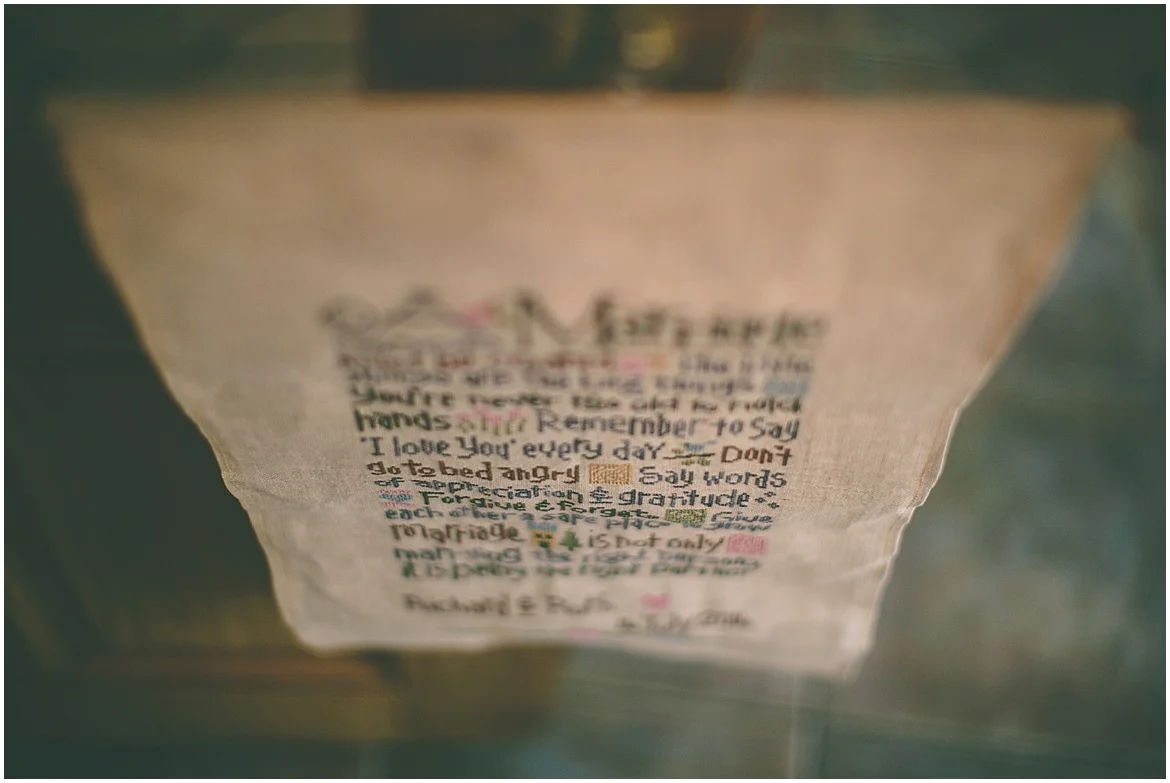 Marriage
the little
things are the big things
You're never too old to hold
hands Remember to Say
'I love You' every day Don't
go to bed angry Say words
of appreciation & gratitude
Forgive & forget Give
each other a safe place to grow
Marriage is not only
marrying the right person
it is being the right partner
Richard & Ruth
July